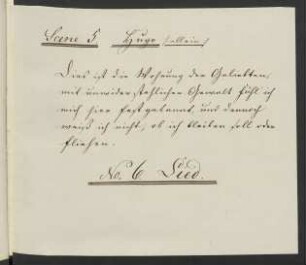 Scene 5. Hugo (allein)
Dies ist die Wohnung der Geliebten,
mit unwiderstehlicher Gewalt fühl ich
mich hier festgebannt, und dennoch
weiß ich nicht, ob ich bleiben soll oder
fliehen.
No. 6 Lied.